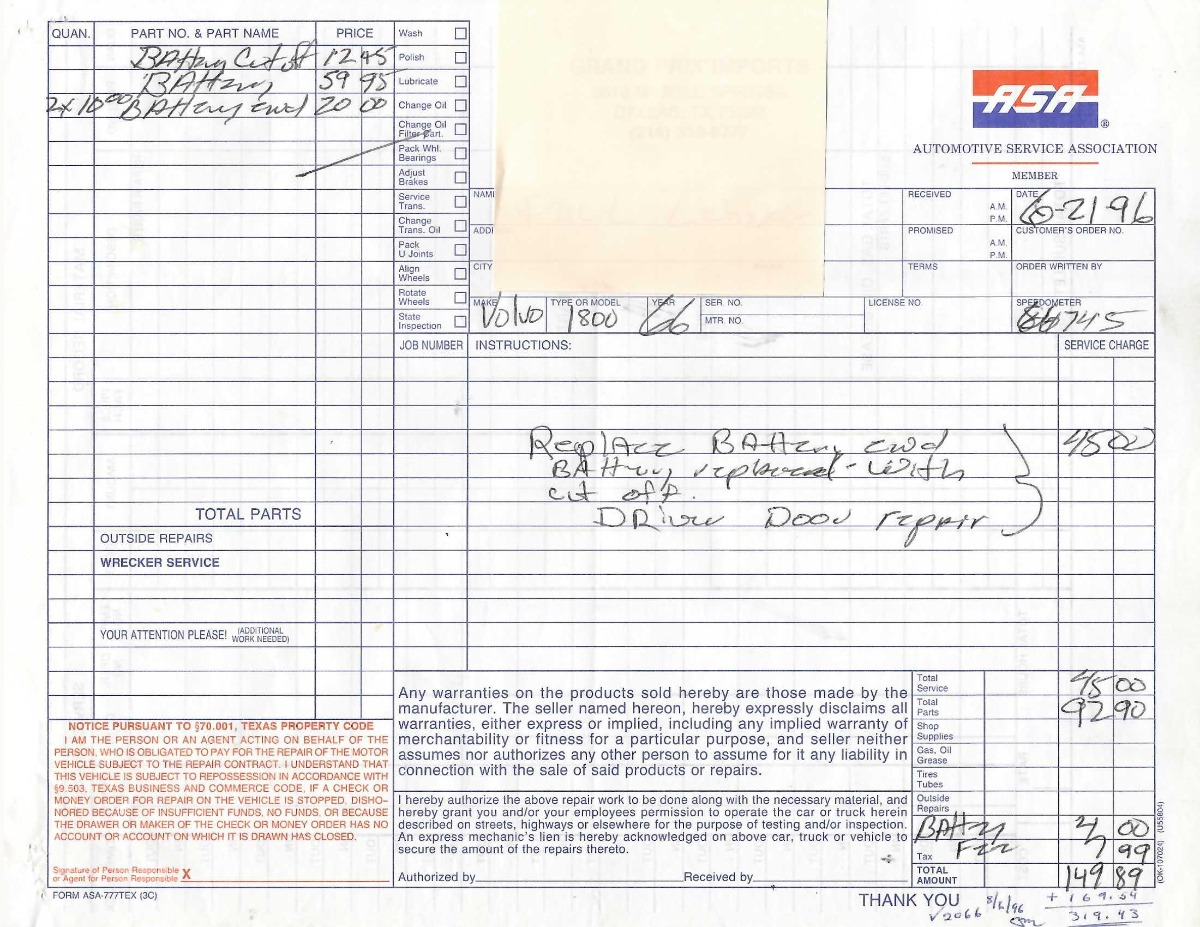 QUAN. PART NO. & PART NAME PRICE
Battery Cut off 12 95
Battery 59 95
2x10 00 Battery end 20 00
Wash
Polish
Lubricate
Change Oil
Change Oil
Filter Cart.
Pack Whl.
Bearings
Adjust
Brakes
Service
Trans.
Change
Trans. Oil
Pack
U Joints
Align
Wheels
Rotate
Wheels
State
Inspection
GRAND PRIX IMPORTS
ASA ®
AUTOMOTIVE SERVICE ASSOCIATION
MEMBER
NAME
RECEIVED A.M. P.M.
DATE 6-21-96
ADD
PROMISED A.M. P.M.
CUSTOMER'S ORDER NO.
CITY
TERMS
ORDER WRITTEN BY
MAKE Volvo
TYPE OR MODEL 1800
YEAR 66
SER. NO.
MTR. NO.
LICENSE NO.
SPEEDOMETER 86745
JOB NUMBER INSTRUCTIONS: SERVICE CHARGE
Replace Battery end 45 00
Battery replaced - with
cut off.
Driver Door repair
TOTAL PARTS
OUTSIDE REPAIRS
WRECKER SERVICE
YOUR ATTENTION PLEASE! (ADDITIONAL WORK NEEDED)
NOTICE PURSUANT TO §70.001, TEXAS PROPERTY CODE
I AM THE PERSON OR AN AGENT ACTING ON BEHALF OF THE
PERSON, WHO IS OBLIGATED TO PAY FOR THE REPAIR OF THE MOTOR
VEHICLE SUBJECT TO THE REPAIR CONTRACT. I UNDERSTAND THAT
THIS VEHICLE IS SUBJECT TO REPOSSESSION IN ACCORDANCE WITH
§9.503, TEXAS BUSINESS AND COMMERCE CODE, IF A CHECK OR
MONEY ORDER FOR REPAIR ON THE VEHICLE IS STOPPED, DISHO-
NORED BECAUSE OF INSUFFICIENT FUNDS, NO FUNDS, OR BECAUSE
THE DRAWER OR MAKER OF THE CHECK OR MONEY ORDER HAS NO
ACCOUNT OR ACCOUNT ON WHICH IT IS DRAWN HAS CLOSED.
Signature of Person Responsible
or Agent for Person Responsible X
FORM ASA-777TEX (3C)
Any warranties on the products sold hereby are those made by the
manufacturer. The seller named hereon, hereby expressly disclaims all
warranties, either express or implied, including any implied warranty of
merchantability or fitness for a particular purpose, and seller neither
assumes nor authorizes any other person to assume for it any liability in
connection with the sale of said products or repairs.
I hereby authorize the above repair work to be done along with the necessary material, and
hereby grant you and/or your employees permission to operate the car or truck herein
described on streets, highways or elsewhere for the purpose of testing and/or inspection.
An express mechanic's lien is hereby acknowledged on above car, truck or vehicle to
secure the amount of the repairs thereto.
Authorized by Received by
Total Service 45 00
Total Parts 92 90
Shop Supplies
Gas, Oil Grease
Tires Tubes
Outside Repairs
Battery Fee 4 00
Tax 7 99
TOTAL AMOUNT 149 89
(OK-107024) (US5804)
THANK YOU
+ 169.54
319.43
√2066 8/6/96